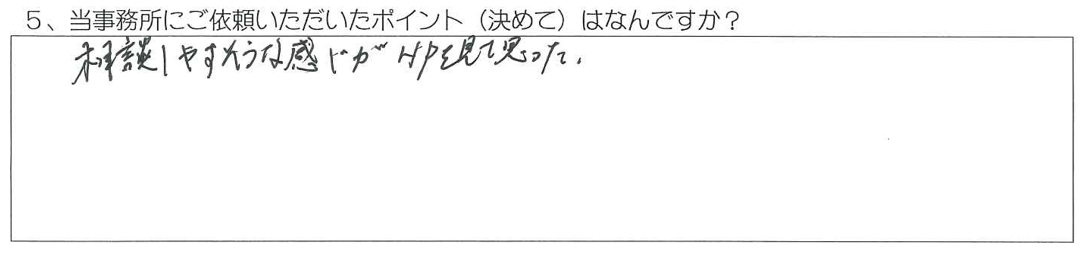 ５、当事務所にご依頼いただいたポイント（決めて）はなんですか？
相談しやすそうな感じがHPを見て思った。